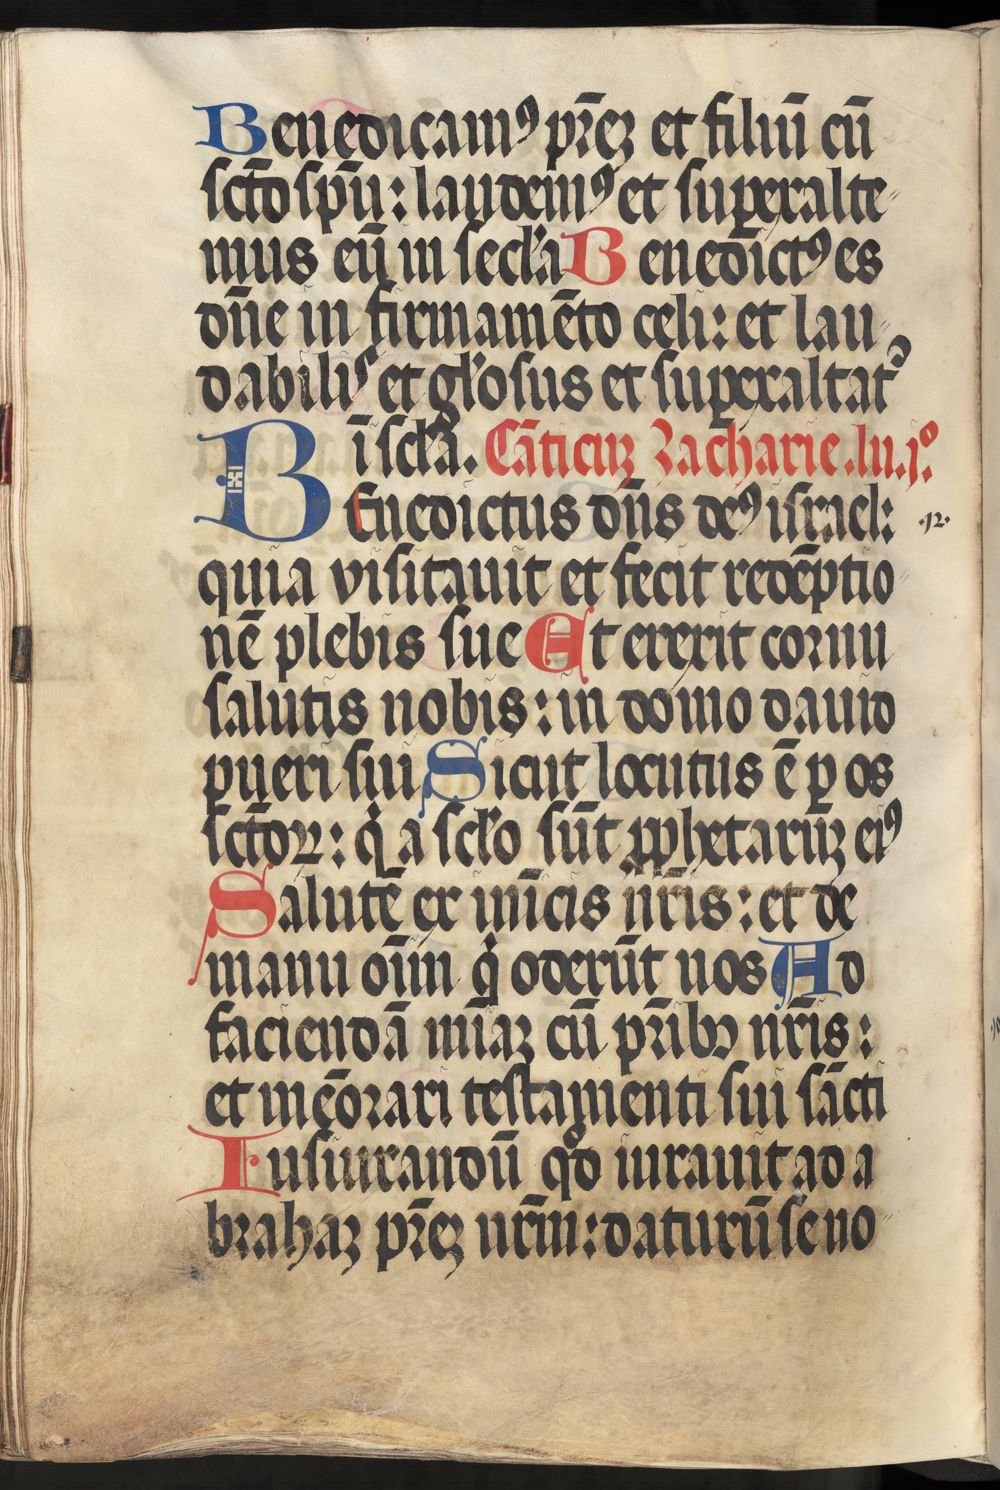 Benedicam⁹ pr̄eꝫ et filiū cū
sctō spū: laudem⁹ et superalte
mus eū in secl̄a Benedict⁹ es
dn̄e in firmamēto celi: et lau
dabilis et gl̄osus et superaltat⁹
ī scl̄a. Cāticuꝫ Zacharie .lu.j°.
Benedictus dn̄s de⁹ israel: .12.
quia visitauit et fecit redēptio
nē plebis sue Et erexit cornu
salutis nobis: in domo dauid
pueri sui Sicut locutus ē ꝑ os
sctōꝝ: q̇ a scl̄o sūt ꝓphetaruꝫ ei⁹
Salutē ex inīcis nr̄is: et de
manu oīm q̇ oderūt nos Ad
faciendā mīaꝫ cū pr̄ibꝫ nr̄is:
et memōrari testamenti sui sācti
Iusiurandū qd̊ iurauit ad a
brahaꝫ pr̄eꝫ nrm̄: daturū se no